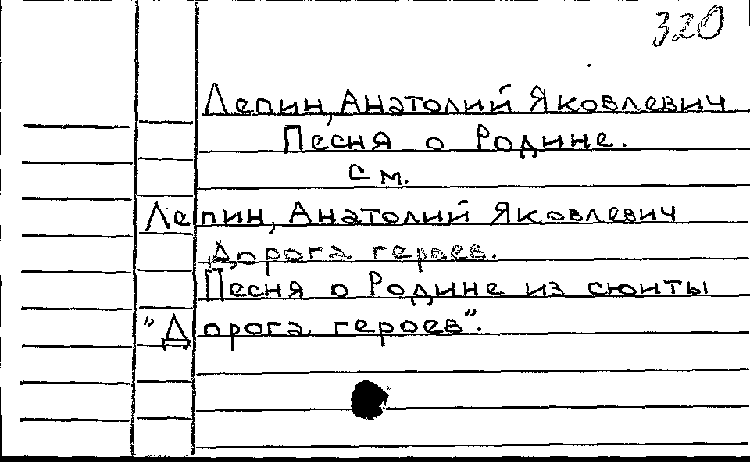 320
Лепин, Анатолий Яковлевич
Песня о Родине.
см.
Лепин, Анатолий Яковлевич
Дорога героев.
Песня о Родине из сюиты
"Дорога героев".